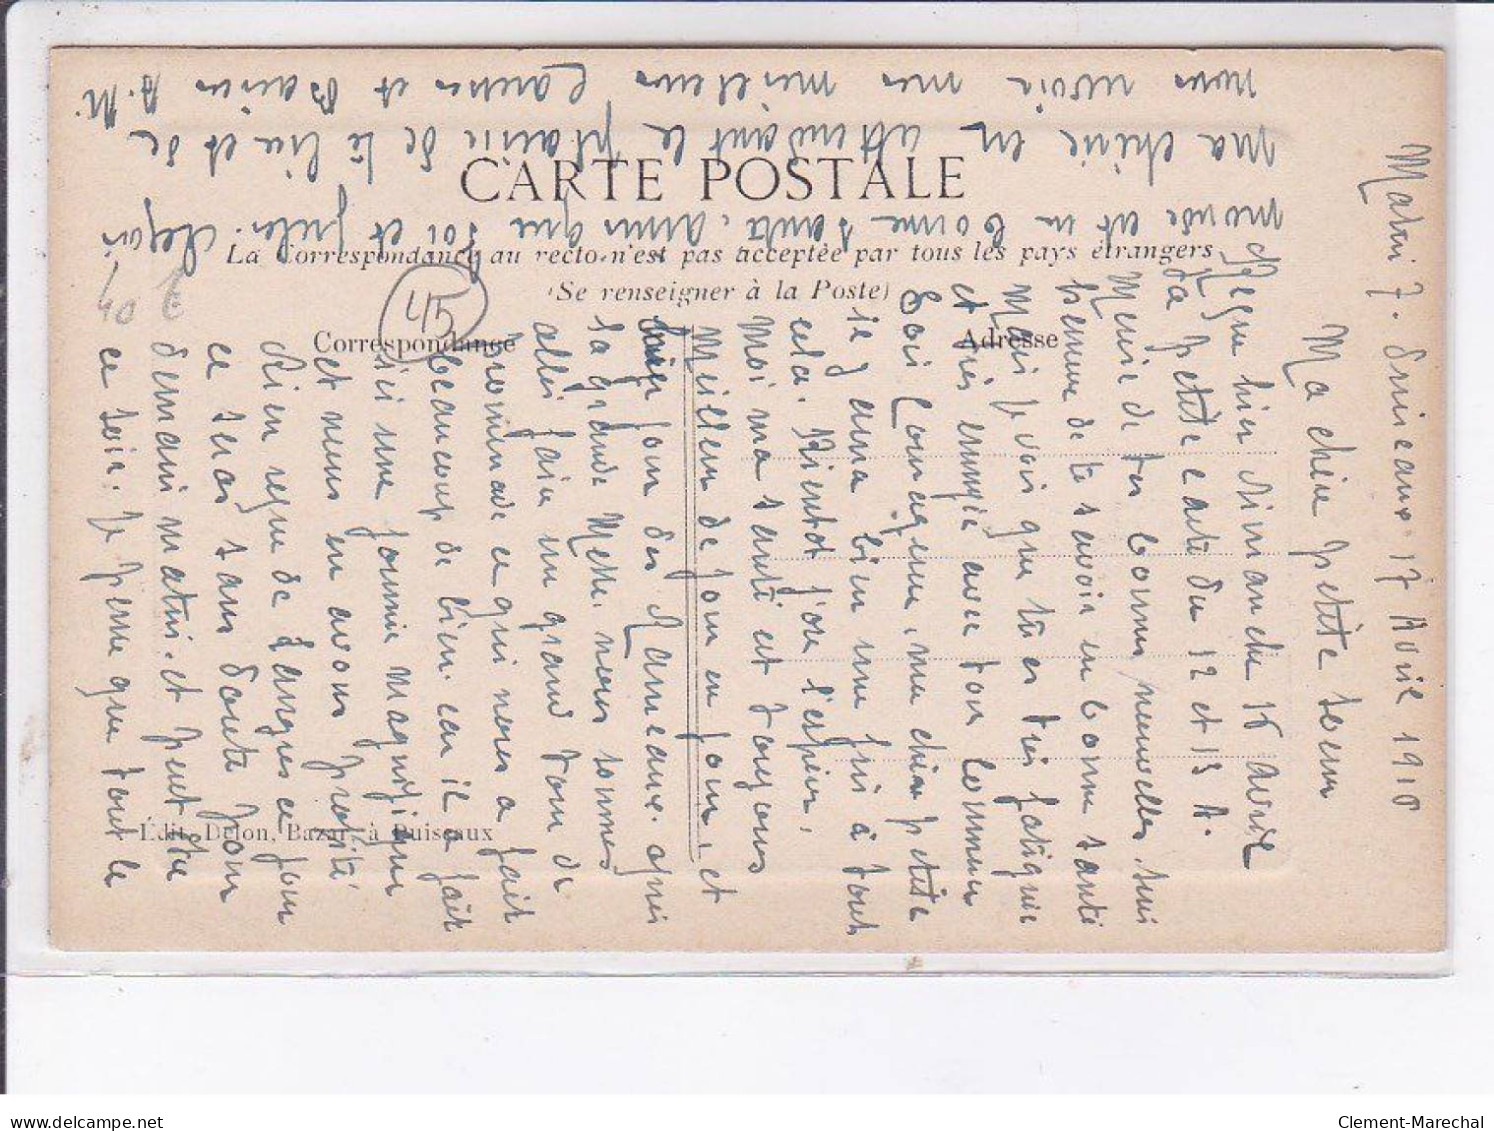 CARTE POSTALE
La Correspondance au recto n'est pas acceptée par tous les pays étrangers
(Se renseigner à la Poste)
Correspondance
Adresse
45
40
Edit. Delon, Bazar, à Puiseaux
Matin 7. Puiseaux 17 Avril 1910
Ma chère petite soeur
Reçu hier dimanche 16 avril
ta petite carte du 12 et 13 A.
Merci de tes bonnes nouvelles, suis
heureuse de te savoir en bonne santé
Mais je vois que tu es très fatiguée
et très ennuyée avec ton
Sois Courageuse, ma chère petite
il y aura bien une fin à tout
cela. Bientôt j'ose l'espérer.
Moi ma santé est toujours
Meilleure de jour en jour, et
jour des Rameaux. après
la grande Messe. nous sommes
allés faire un grand tour de
promenade ce qui nous a fait
beaucoup de bien. car il a fait
ici une journée Magnifique
et nous en avons profité
Rien reçu de Langres ce jour
ce sera sans doute pour
demain matin. et peut être
ce soir. Je pense que tout le
monde est en bonne santé, ainsi que toi et
ma chérie en attendant le plaisir de te lire et de
nous revoir mes meilleurs et Baisers B. M.
Clement-Marechal
www.delcampe.net